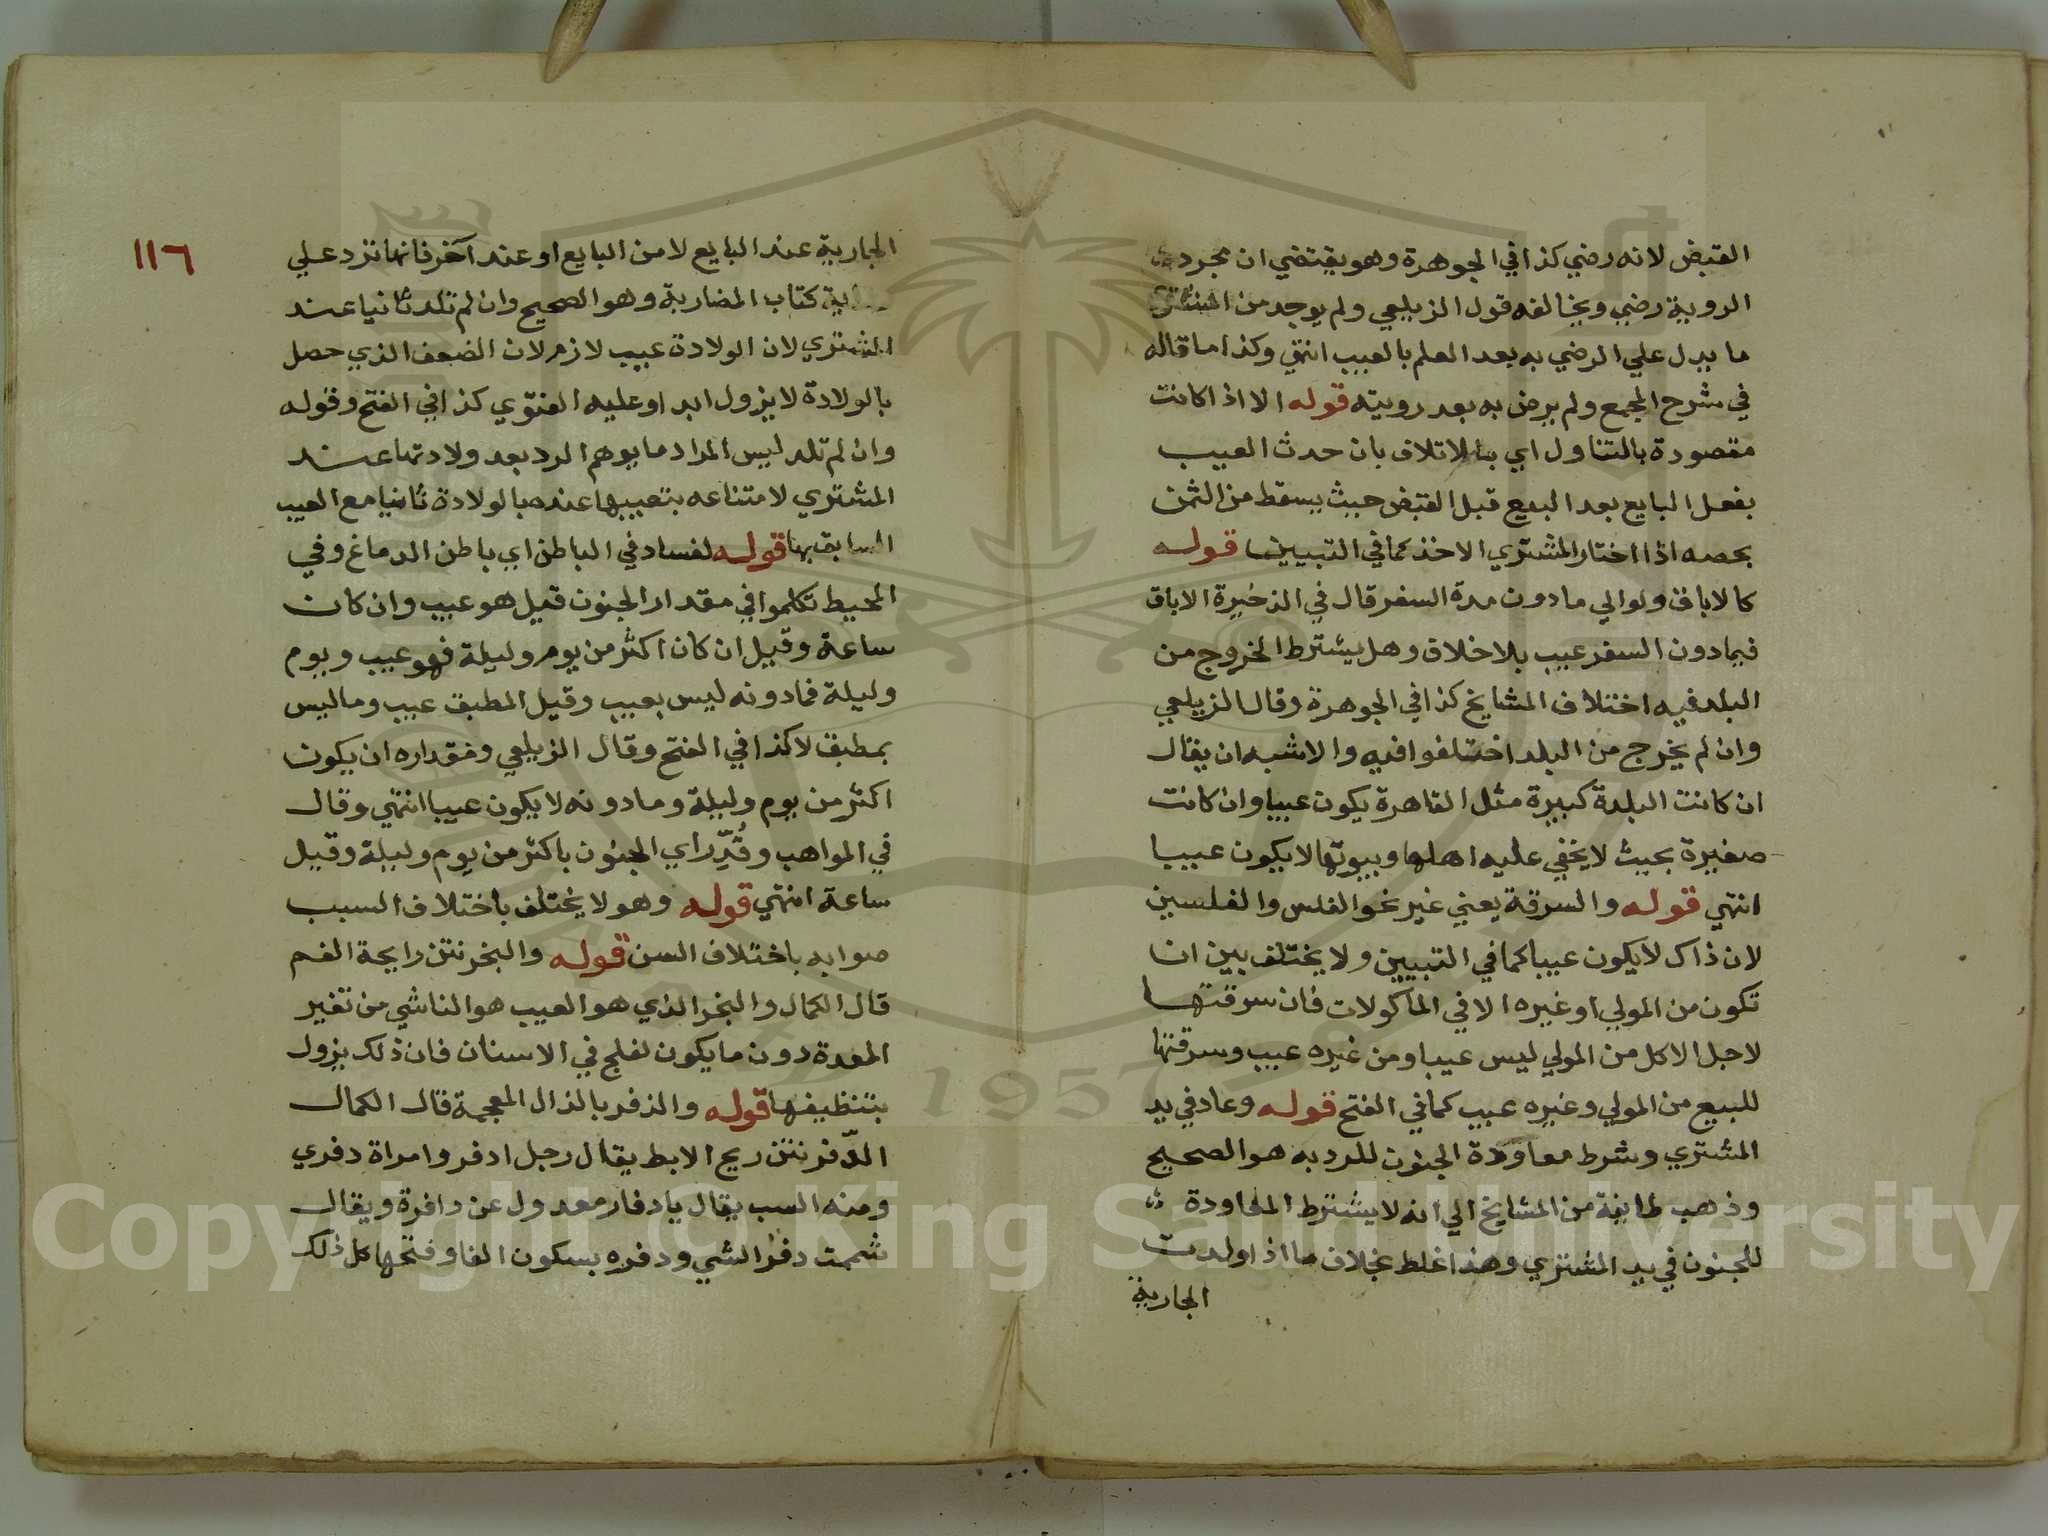 القبض لانه رضي كذا في الجوهرة وهو يقتضي ان مجرد
الروية رضي ويخالفه قول الزيلعي ولم يوجد من المشتري
ما يدل علي الرضي به بعد العلم بالعيب انتهي وكذا ما قاله
في شرح المجمع ولم يرض به بعد رويته قوله الا اذا كانت
مقصودة بالتناول اي بالاتلاف بان حدث العيب
بفعل البايع بعد البيع قبل القبض حيث يسقط من الثمن
بحصه اذا اختار المشتري الاخذ كما في التبيين قوله
كالاباق ولوالي مادون مدة السفر قال في الذخيرة الاباق
فيمادون السفر عيب بلا خلاف وهل يشترط الخروج من
البلد فيه اختلاف المشايخ كذا في الجوهرة وقال الزيلعي
وان لم يخرج من البلد اختلفوا فيه والاشبه ان يقال
ان كانت البلدة كبيرة مثل القاهرة يكون عيبا وان كانت
صغيرة بحيث لا يخفي عليه اهلها وبيوتها لا يكون عيبا
انتهي قوله والسرقة يعني غير نحو الفلس والفلسين
لان ذاك لا يكون عيبا كما في التبيين ولا يختلف بين ان
تكون من المولي او غيره الا في الماكولات فان سرقتها
لاجل الاكل من المولي ليس عيبا ومن غيره عيب وسرقتها
للبيع من المولي وغيره عيب كما في الفتح قوله وعاد في يد
المشتري وشرط معاودة الجنون للرد به هو الصحيح
وذهب طايفة من المشايخ الي انه لا يشترط المعاودة
للجنون في يد المشتري وهذا غلط بخلاف ما اذا ولدت
الجارية
١١٦
الجارية عند البايع لا من البايع او عند آخر فانها ترد علي
كتاب المضاربة وهو الصحيح وان لم تلد ثانيا عند
المشتري لان الولادة عيب لازم لان الضعف الذي حصل
بالولادة لا يزول ابدا وعليه الفتوي كذا في الفتح وقوله
وان لم تلد ليس المراد ما يوهم الرد بعد ولادتها عند
المشتري لامتناعه بتعيبها عنده بالولادة ثانيا مع العيب
السابق بها قوله لفساد في الباطن اي باطن الدماغ وفي
المحيط تكلموا في مقدار الجنون قيل هو عيب وان كان
ساعة وقيل ان كان اكثر من يوم وليلة فهو عيب ويوم
وليلة فمادونه ليس بعيب وقيل المطبق عيب وما ليس
بمطبق لا كذا في الفتح وقال الزيلعي ومقداره ان يكون
اكثر من يوم وليلة ومادونه لا يكون عيبا انتهي وقال
في المواهب وقُدِّر اي الجنون باكثر من يوم وليلة وقيل
ساعة انتهي قوله وهو لا يختلف باختلاف السبب
صوابه باختلاف السن قوله والبخر نتن رايحة الفم
قال الكمال والبخر الذي هو العيب هو الناشي من تغير
المعدة دون ما يكون لفلج في الاسنان فان ذلك يزول
بتنظيفها قوله والذفر بالذال المعجمة قال الكمال
الدّفر نتن ريح الابط يقال رجل ادفر وامراة دفري
ومنه السب يقال يا دفار معدول عن دافرة ويقال
شممت دفر الشي ودفره بسكون الفا وفتحها كل ذلك
Copyright © King Saud University
1957